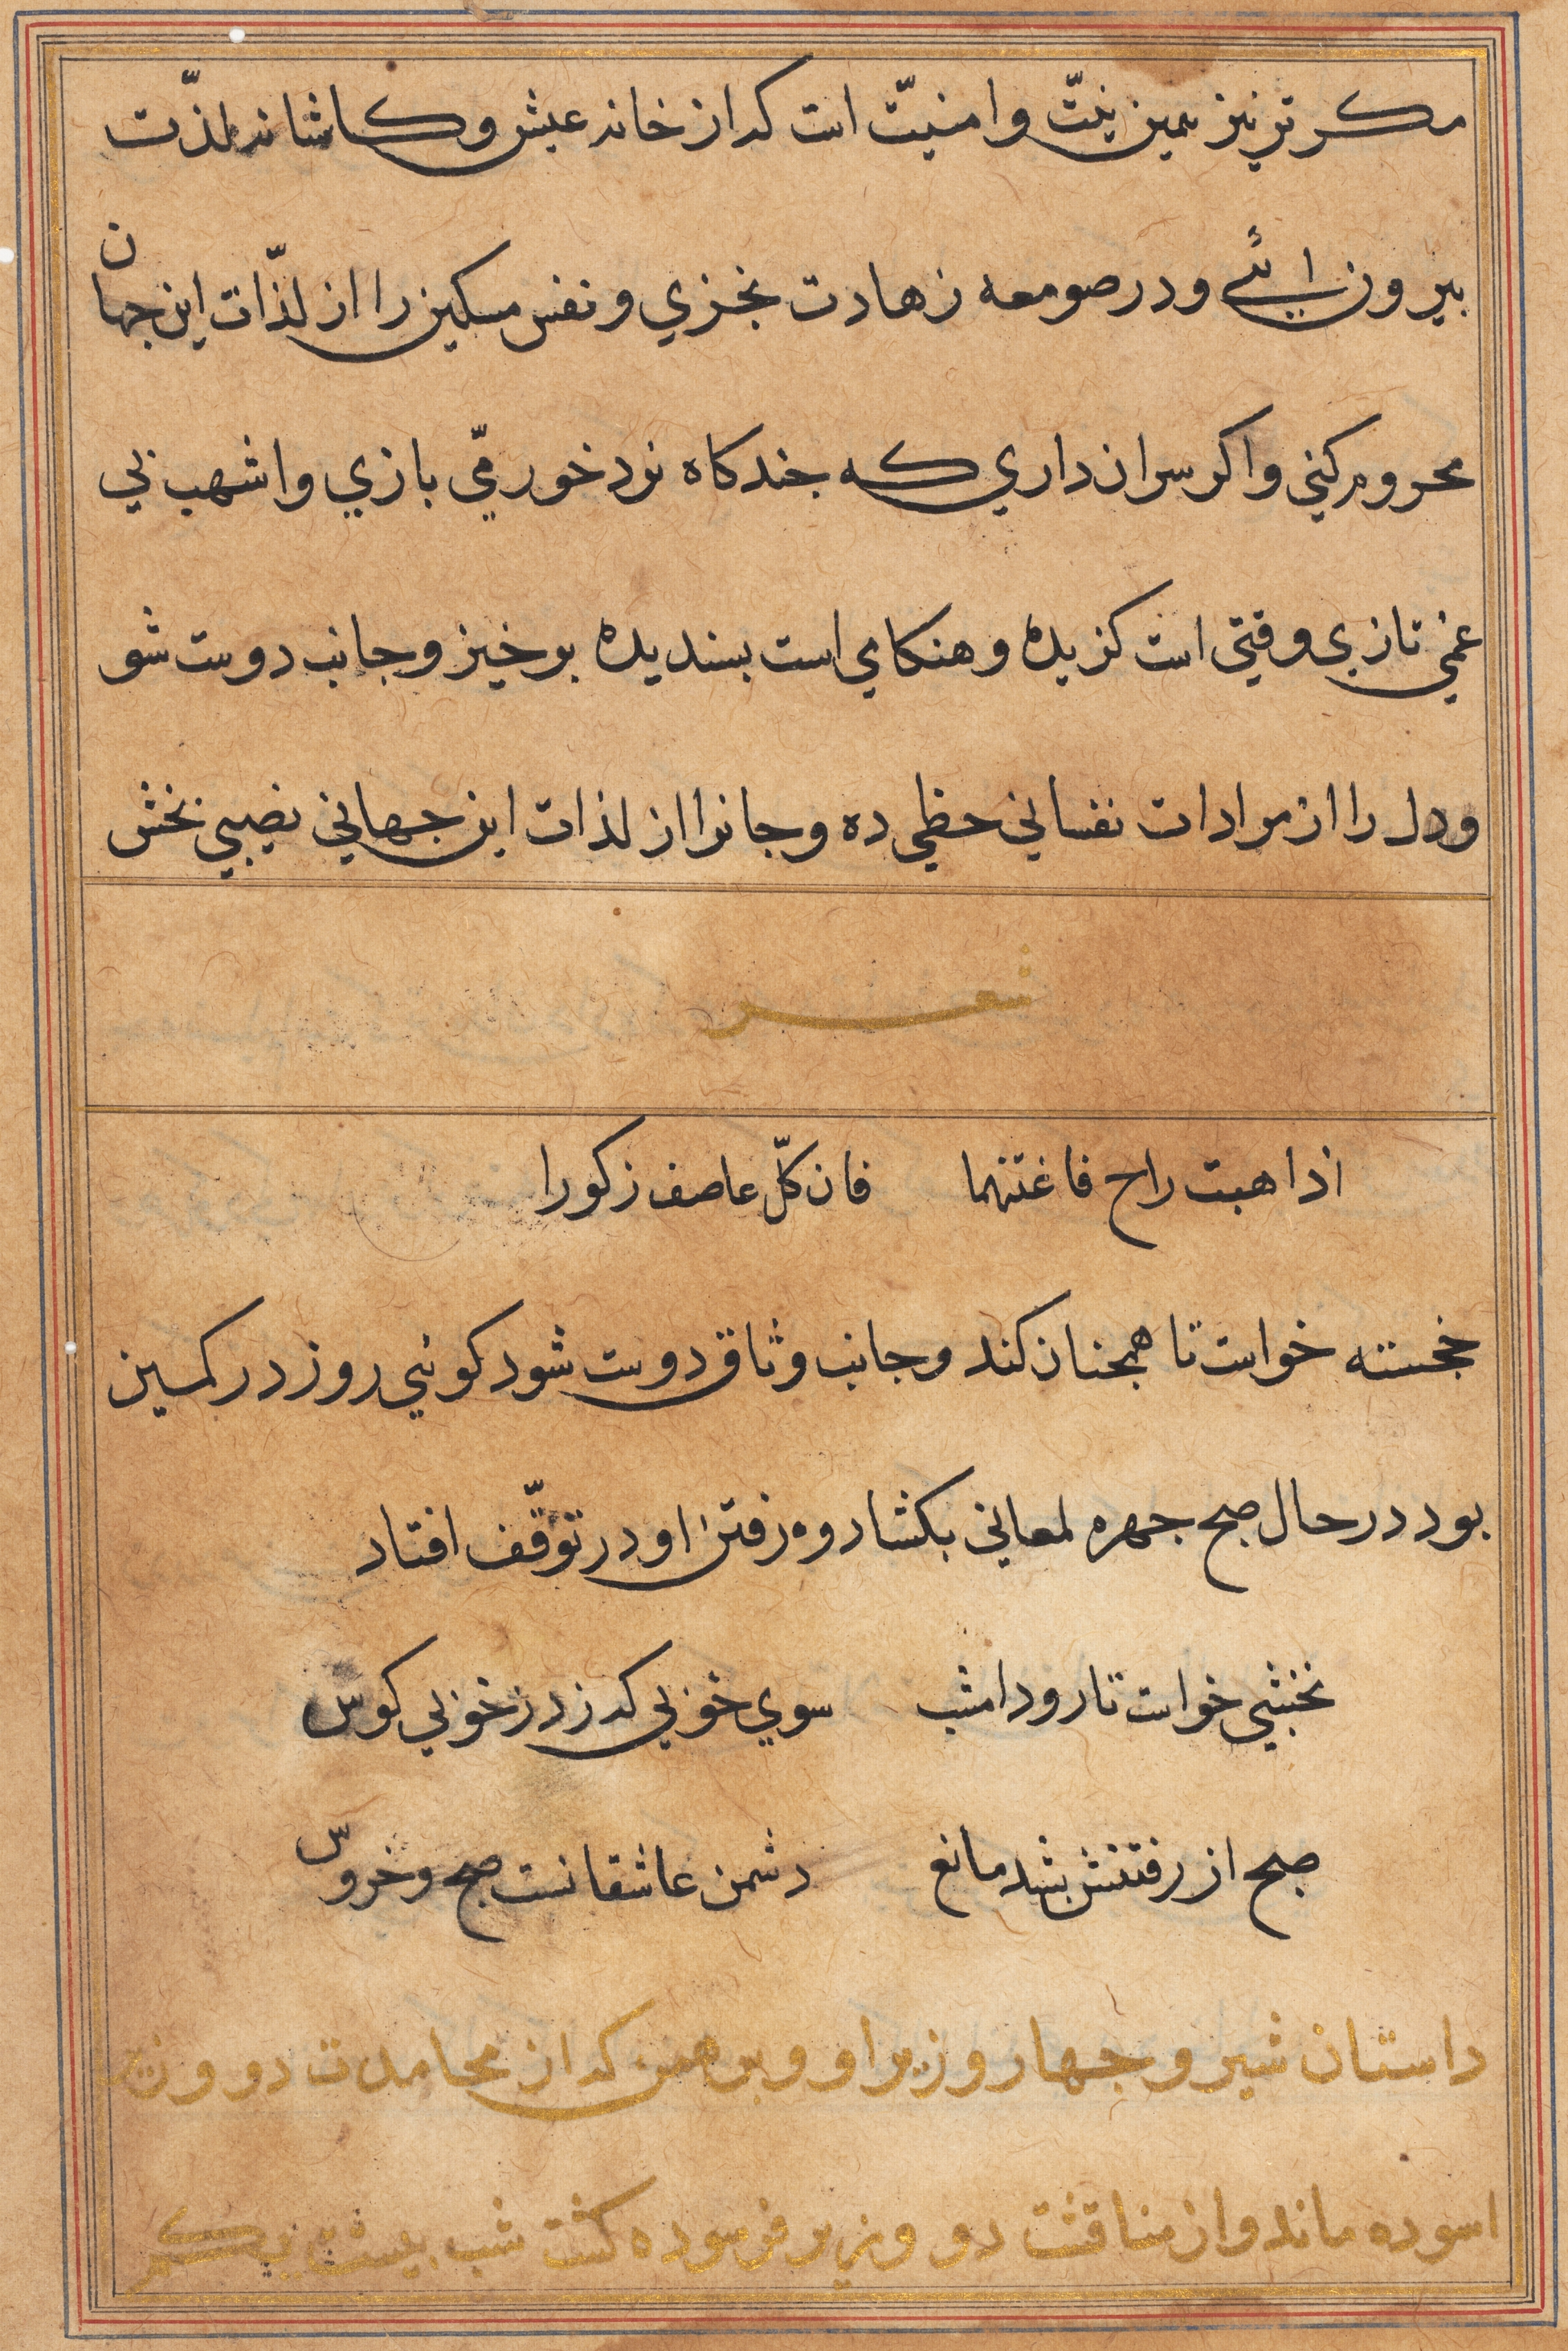 مكر ترنيز همين نيتّ وامنيتّ است كه از خانه عيش وكاشانه لذّت
بيرون ائي ودر صومعه زهادت بخزي ونفس مسكين را از لذّات اين جهان
محروم كني واكر سران داري كه جند كاه نرد خورمّي بازي واشهب بي
غمي تازي وقتي است كزيده وهنكامي است بسنديده برخيز وجانب دوست شو
ودل را از مرادات نفساني حظي ده وجانرا از لذات اين جهاني نصيبي بخش
شعر
اذا هبت راح فاغتنهما فان كلّ عاصف زكورا
خجسته خواست تا همجنان كند وجانب وثاق دوست شود كوئي روز در كمين
بود در حال صبح جهره لمعاني بكشاد وه رفتن او در توقّف افتاد
نخشبي خواست تا رود امشب سوي خوبي كه زد ز خوبي كوس
صبح از رفتنش بشد مانع دشمن عاشقانست صبح وخروسّ
داستان شير وجهار وزير او وبرهمن كه از محامدت دو وزير
اسوده ماند واز مناقشت دو وزير فرسوده كشت شب بيست يكم